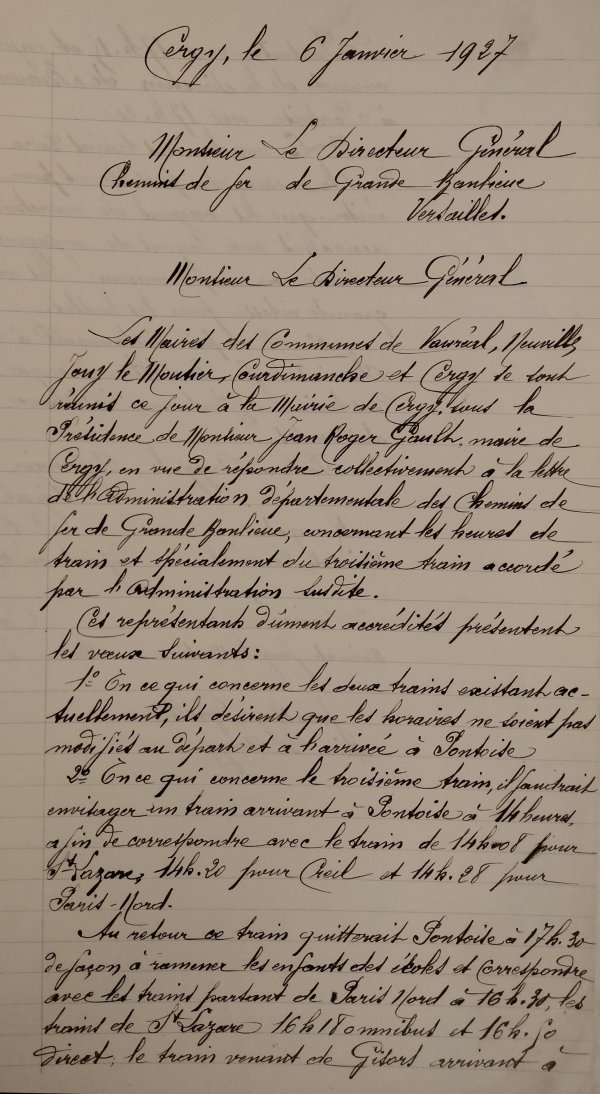 Cergy, le 6 Janvier 1927
Monsieur Le Directeur Général
Chemins de fer de Grande Banlieue
Versailles.
Monsieur Le Directeur Général
Les Maires des Communes de Vauréal, Neuville,
Jouy le Moutier, Courdimanche et Cergy se sont
réunis ce jour à la Mairie de Cergy, sous la
Présidence de Monsieur Jean Roger Gault, maire de
Cergy, en vue de répondre collectivement à la lettre
de l'Administration départementale des Chemins de
fer de Grande Banlieue, concernant les heures de
train et spécialement du troisième train accordé
par l'Administration susdite.
Ces représentants dûment accrédités présentent
les vœux suivants :
1º En ce qui concerne les deux trains existant ac-
tuellement, ils désirent que les horaires ne soient pas
modifiés au départ et à l'arrivée à Pontoise
2º En ce qui concerne le troisième train, il faudrait
envisager un train arrivant à Pontoise à 14 heures,
afin de correspondre avec le train de 14h08 pour
St Lazare, 14h.20 pour Creil et 14h.28 pour
Paris-Nord.
Au retour ce train quitterait Pontoise à 17h.30
de façon à ramener les enfants des écoles et correspondre
avec les trains partant de Paris Nord à 16h.30, les
trains de St Lazare 16h18 omnibus et 16h.50
direct, le train venant de Gisors arrivant à